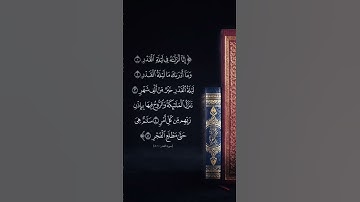 ﴿ إِنَّا أَنزَلْنَـٰهُ فِى لَيْلَةِ ٱلْقَدْرِ ١
وَمَآ أَدْرَىٰكَ مَا لَيْلَةُ ٱلْقَدْرِ ٢
لَيْلَةُ ٱلْقَدْرِ خَيْرٌ مِّنْ أَلْفِ شَهْرٍ ٣
تَنَزَّلُ ٱلْمَلَـٰٓئِكَةُ وَٱلرُّوحُ فِيهَا بِإِذْنِ
رَبِّهِم مِّن كُلِّ أَمْرٍ ٤ سَلَـٰمٌ هِىَ
حَتَّىٰ مَطْلَعِ ٱلْفَجْرِ ٥ ﴾